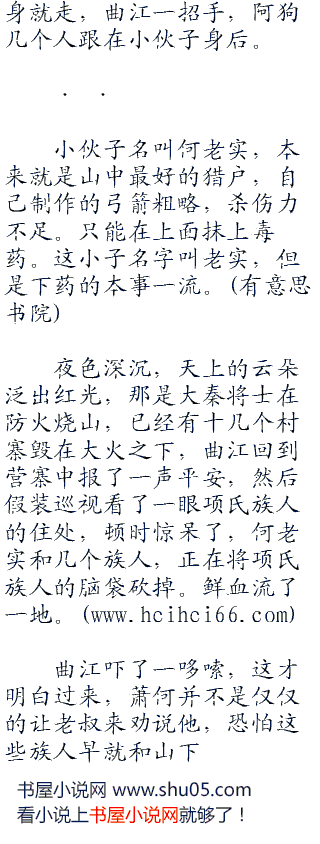 身就走，曲江一招手，阿狗
几个人跟在小伙子身后。
. .
小伙子名叫何老实，本
来就是山中最好的猎户，自
己制作的弓箭粗略，杀伤力
不足。只能在上面抹上毒
药。这小子名字叫老实，但
是下药的本事一流。(有意思
书院)
夜色深沉，天上的云朵
泛出红光，那是大秦将士在
防火烧山，已经有十几个村
寨毁在大火之下，曲江回到
营寨中报了一声平安，然后
假装巡视看了一眼项氏族人
的住处，顿时惊呆了，何老
实和几个族人，正在将项氏
族人的脑袋砍掉。鲜血流了
一地。(www.hcihci66.com)
曲江吓了一哆嗦，这才
明白过来，萧何并不是仅仅
的让老叔来劝说他，恐怕这
些族人早就和山下
书屋小说网 www.shu05.com
看小说上书屋小说网就够了！